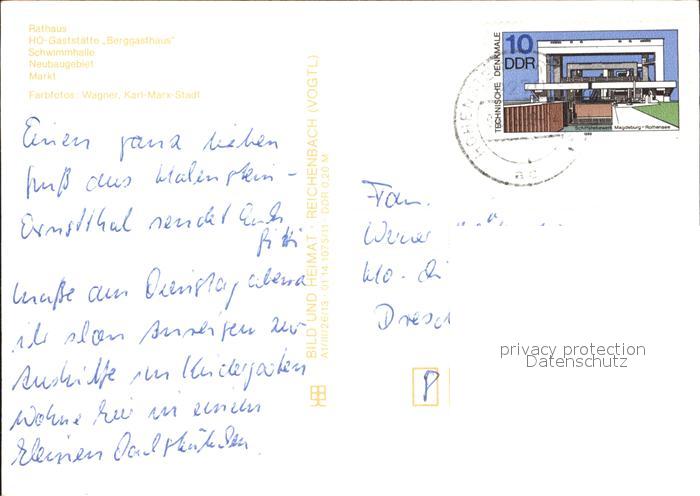 Rathaus
HO-Gaststätte „Berggasthaus"
Schwimmhalle
Neubaugebiet
Markt
Farbfotos: Wagner, Karl-Marx-Stadt
Einen ganz lieben
Gruß aus Hohenstein-
Ernstthal sendet Euch
mußte am Dienstag abend
zur
Aushilfe im Kindergarten
Wohne hier in einem
kleinen Dachstübchen.
BILD UND HEIMAT · REICHENBACH (VOGTL)
A1/III/26/13 · 01 14 1075/11 · DDR 0,20 M
TECHNISCHE DENKMALE
10
DDR
Schiffshebewerk Magdeburg-Rothensee
1988
Fam.
Werner
Dresd
privacy protection
Datenschutz